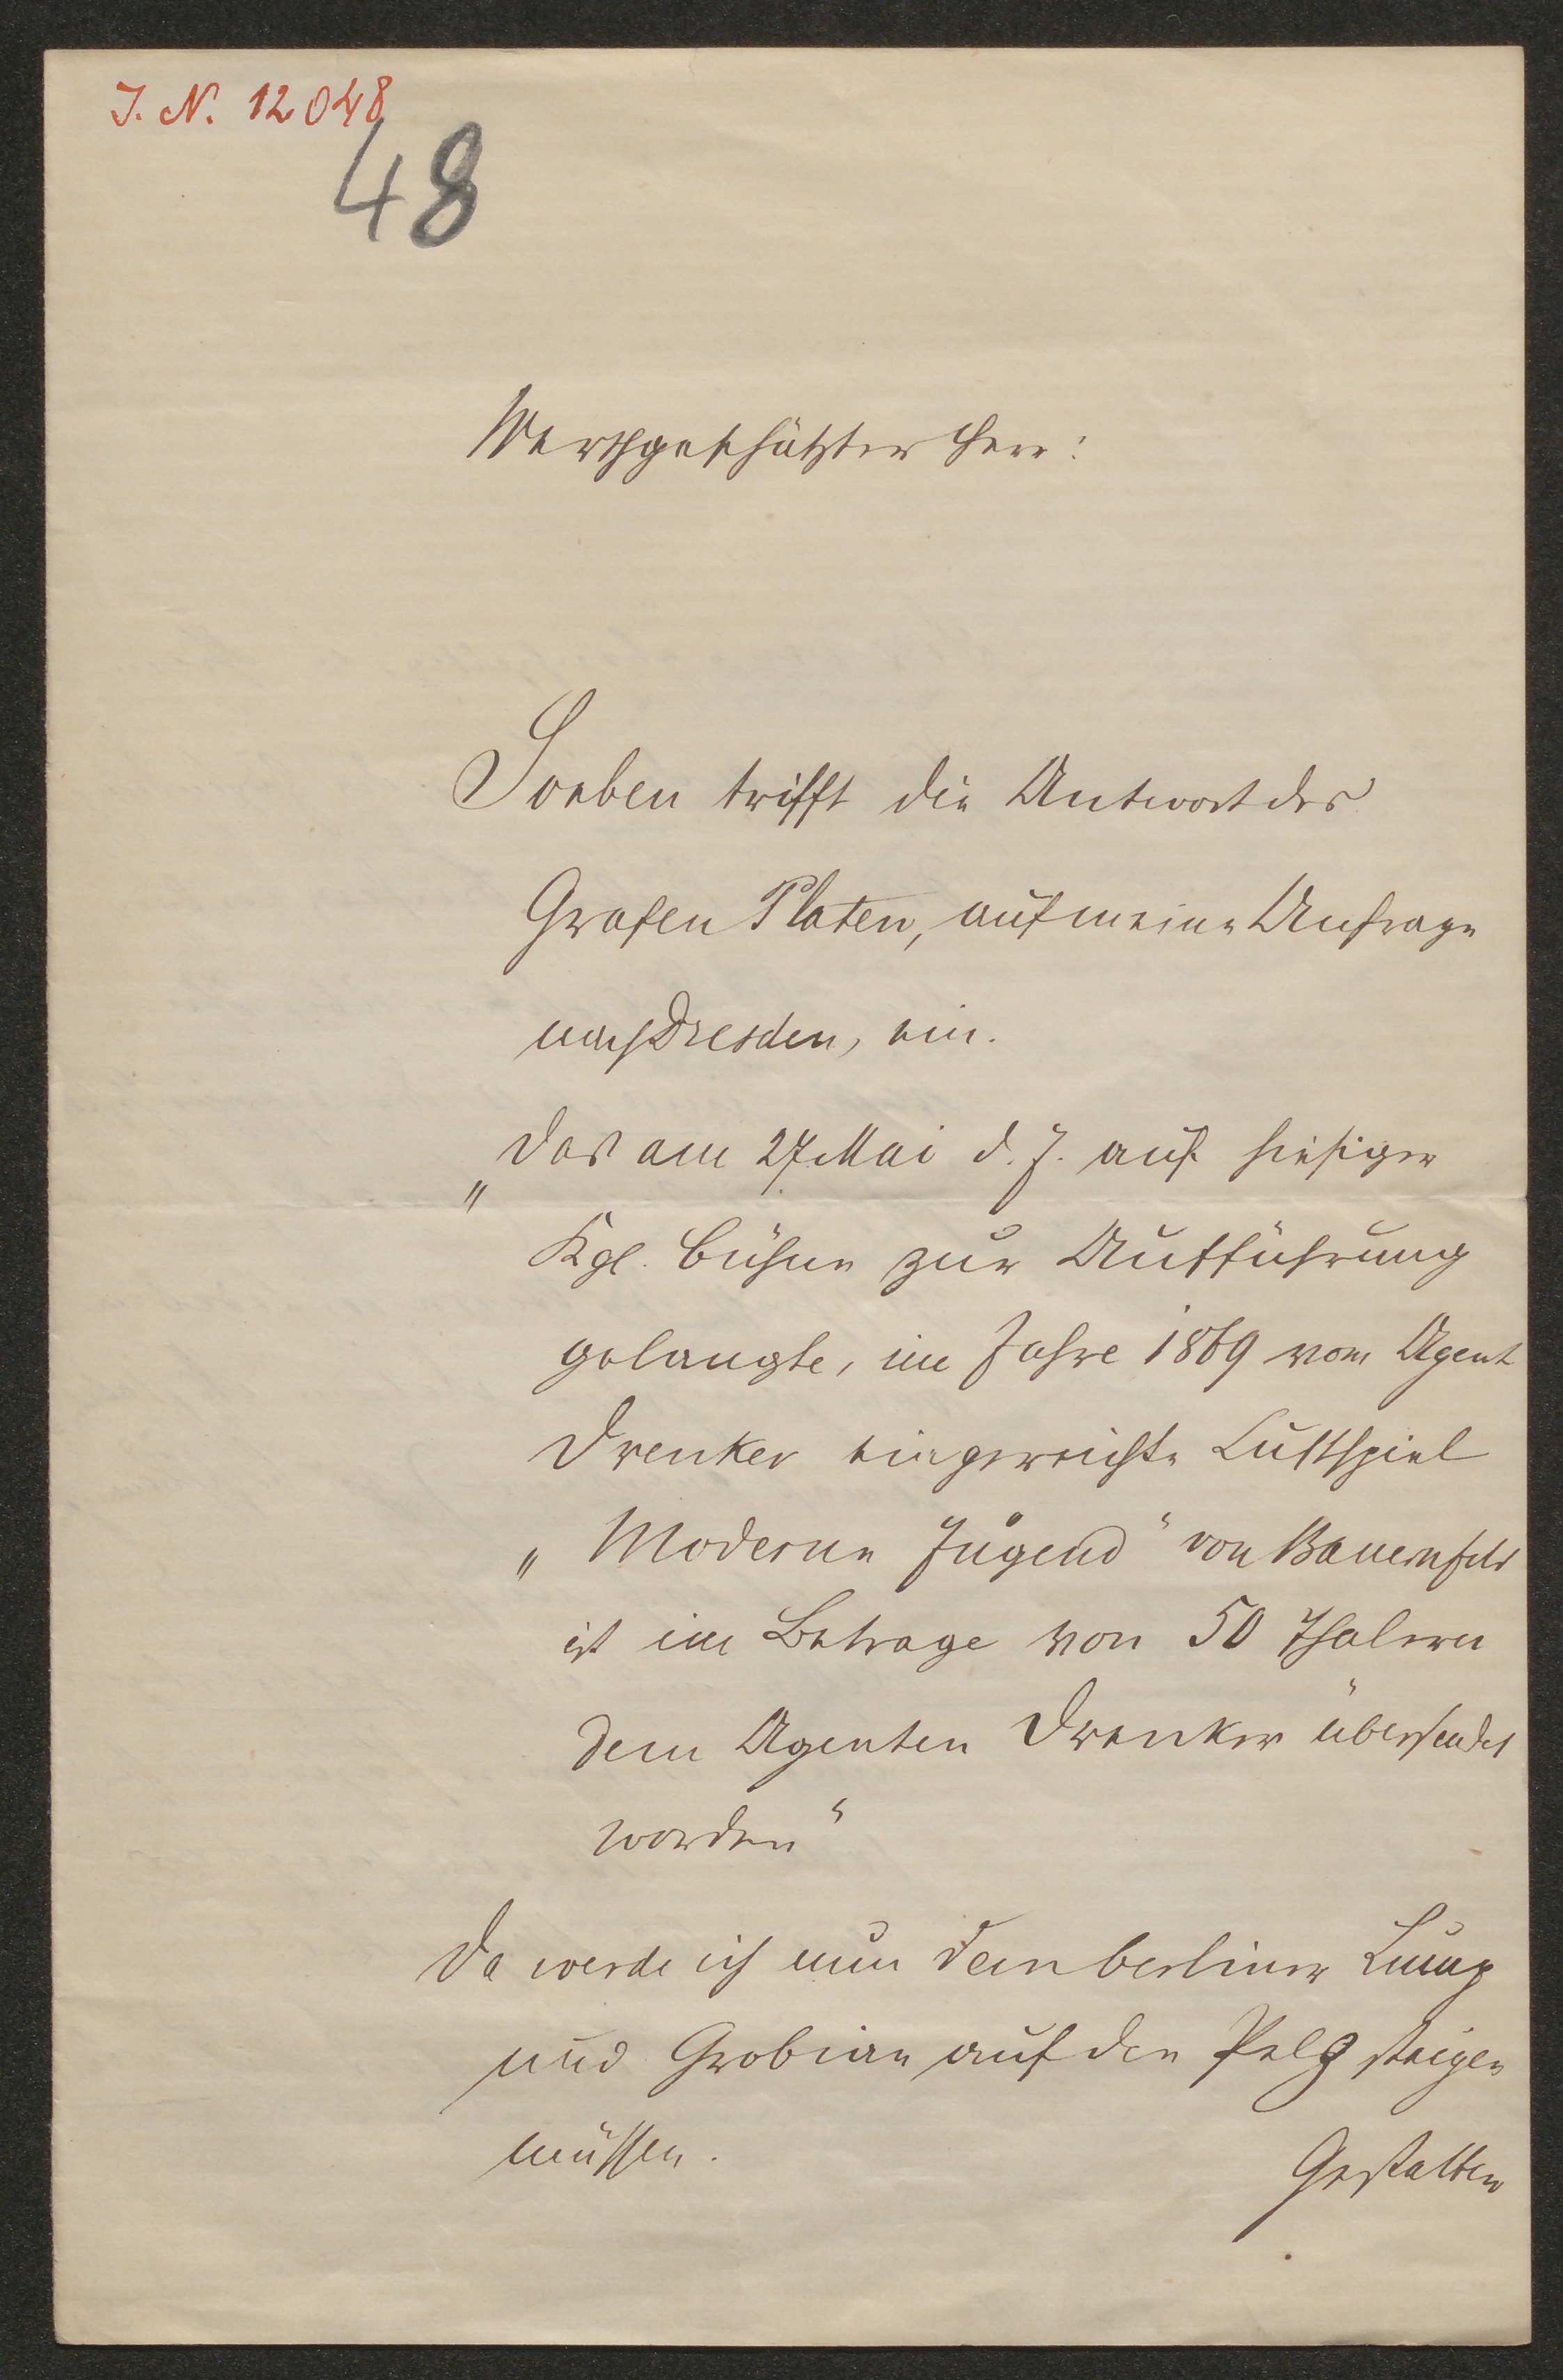 J. N. 12048
48
Werthgeschätzter Herr:
Soeben trifft die Antwort des
Grafen Platen, auf meine Anfrage
nach Dresden, ein.
„Das am 27 Mai d. J. auf hiesiger
Kgl. Bühne zur Aufführung
gelangte, im Jahre 1869 vom Agent
Drenker eingereichte Lustspiel
„Moderne Jugend“ von Bauernfeld
ist im Betrage von 50 Thalern
dem Agenten Drenker übersendet
worden“
Da werde ich nun dem berliner Lump
und Grobian auf den Pelz steigen
müssen.
Gestatten